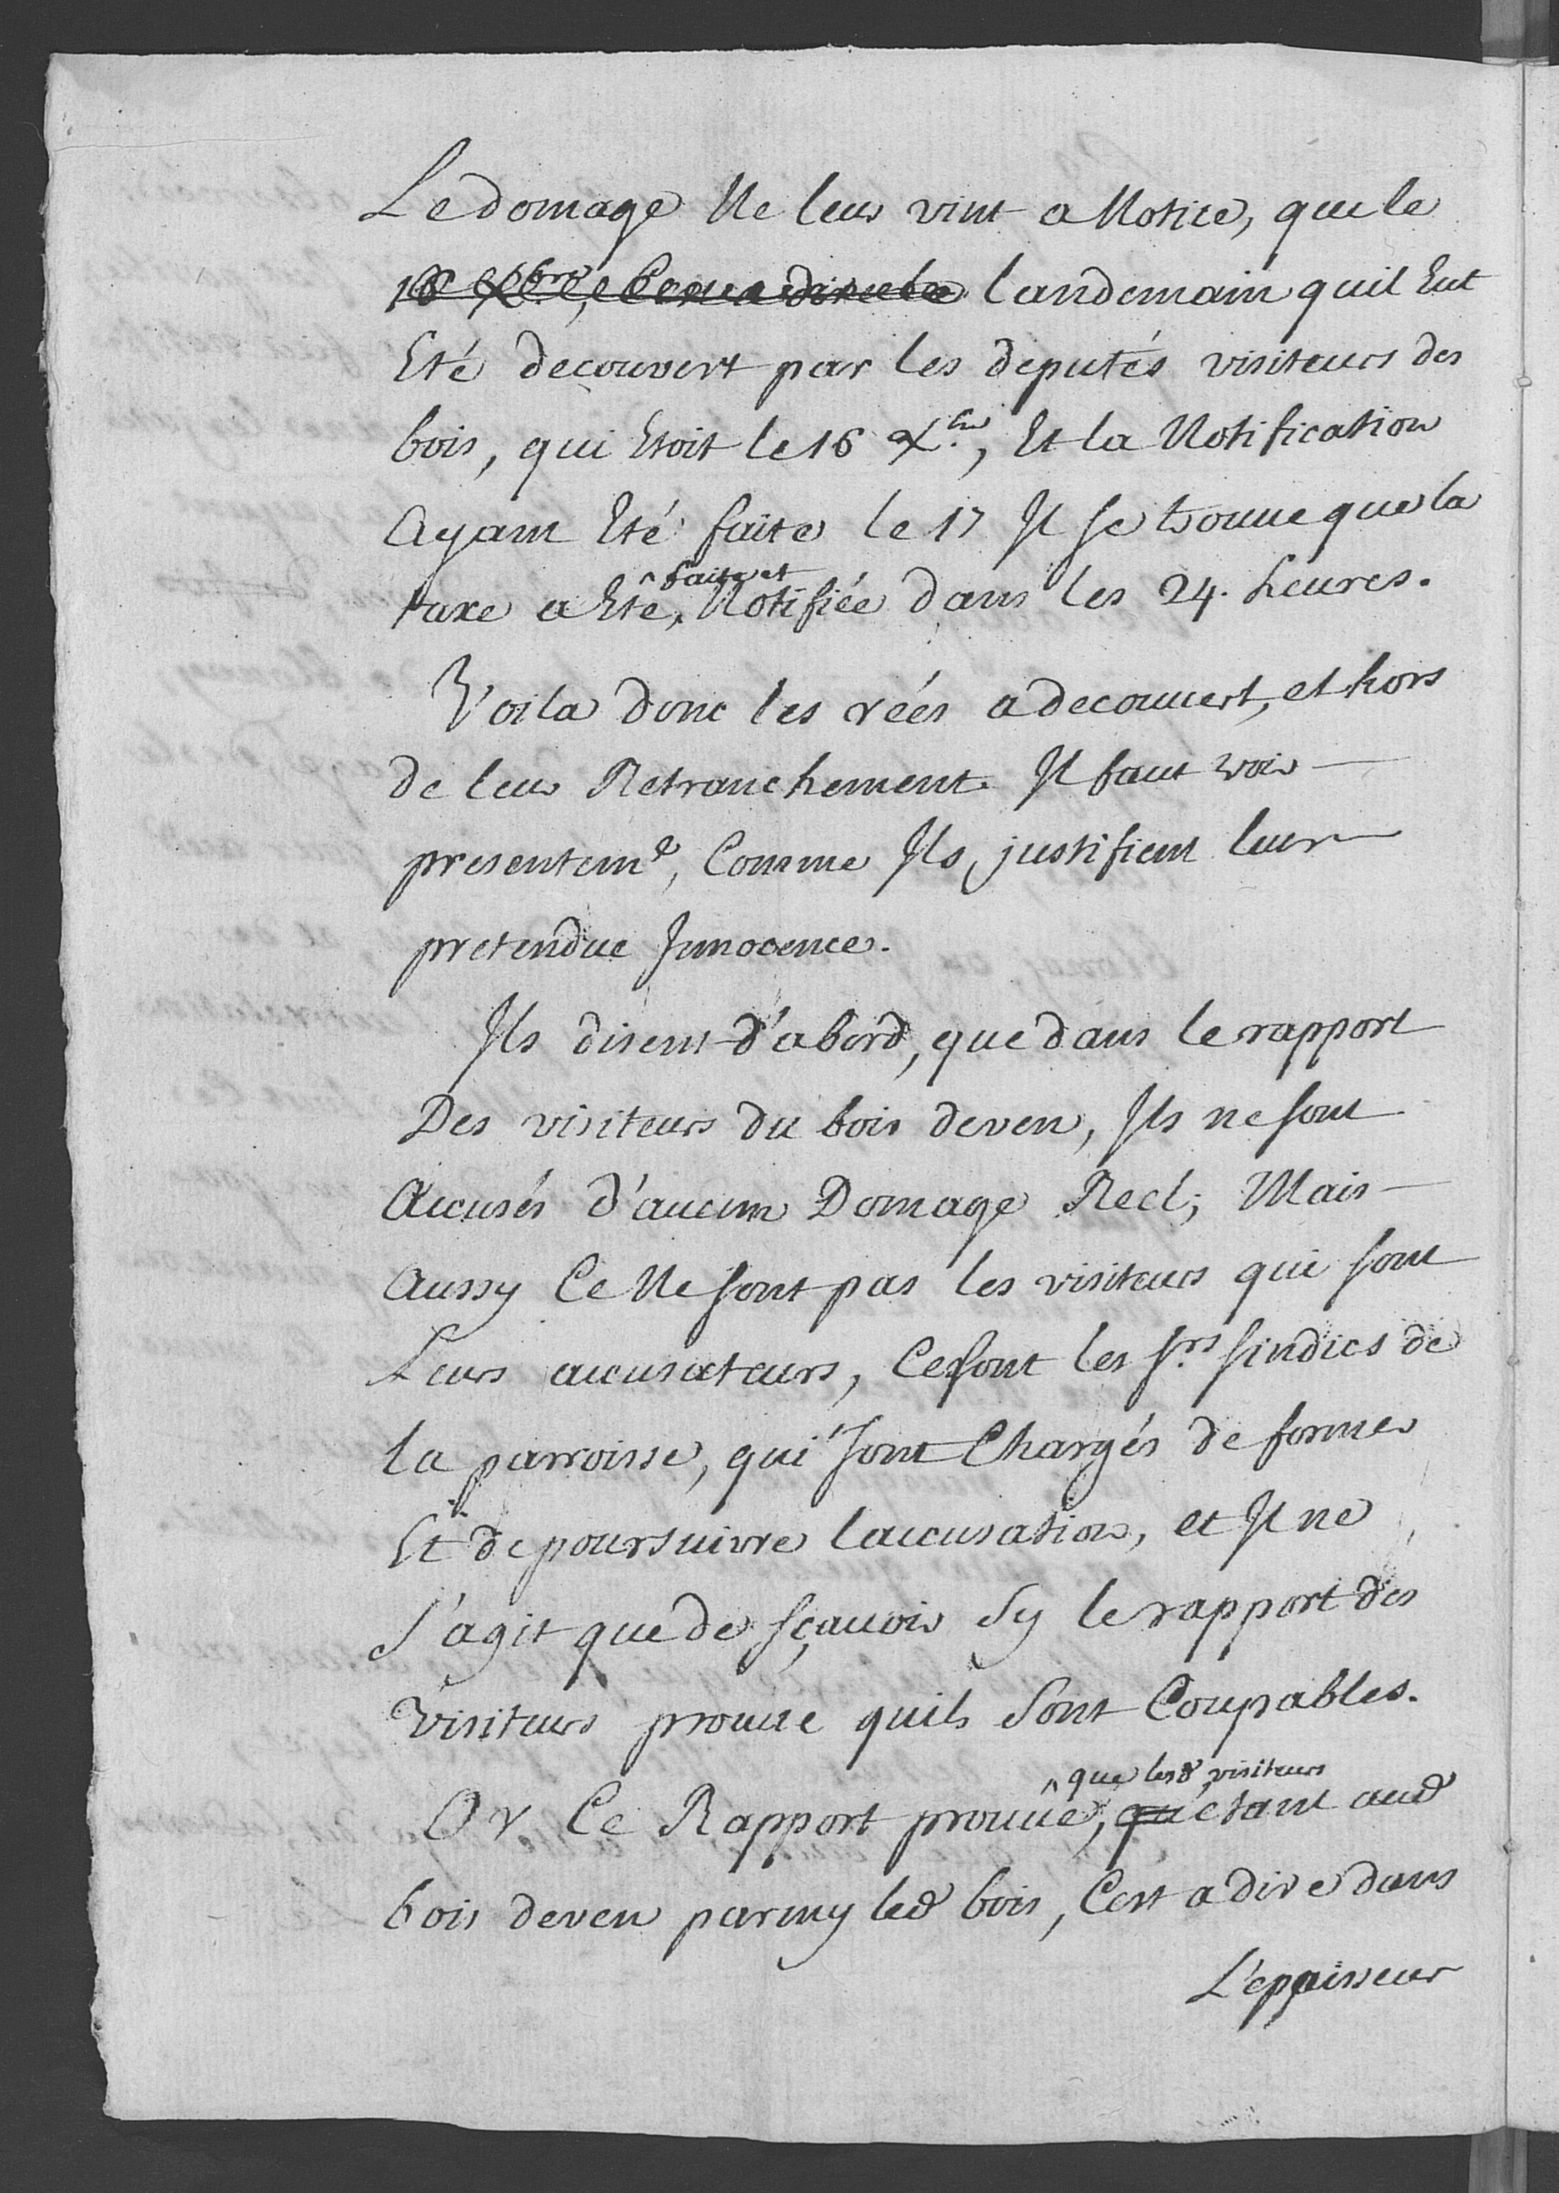 Le domage Ne leur vint a Notice, que le
16 Xbre, C'est a dire le landemain quil Eut
Eté decouvert par les deputés visiteurs des
bois, qui Etoit le 16 Xbre, Et la Notification
Ayant Eté faite le 17 Il se trouve que la
taxe a Eté, ^faite et Notifiée dans les 24. heures.
Voila donc les réés a decouvert, et hors
de leur Retranchement. Il faut voir
presentemt, Comme Ils justifient leur
pretendue Innocence.
Ils disent d'abord, que dans le rapport
Des visiteurs du bois deven, Ils ne sont
Accusés d'aucun Domage Reel; Mais
Aussy Ce Ne sont pas les visiteurs qui sont
Leurs accusateurs, Ce sont les Srs sindics de
la parroisse, qui sont Chargés de former
Et de poursuivre laccusation, et Il ne
S'agit que de sçavoir Sy le rapport des
Visiteurs prouve quils Sont Coupables.
Or Ce Rapport prouve, ^que lesd visiteurs qu'etant aud
bois deven parmy led bois, C'est a dire dans
L'epaisseur